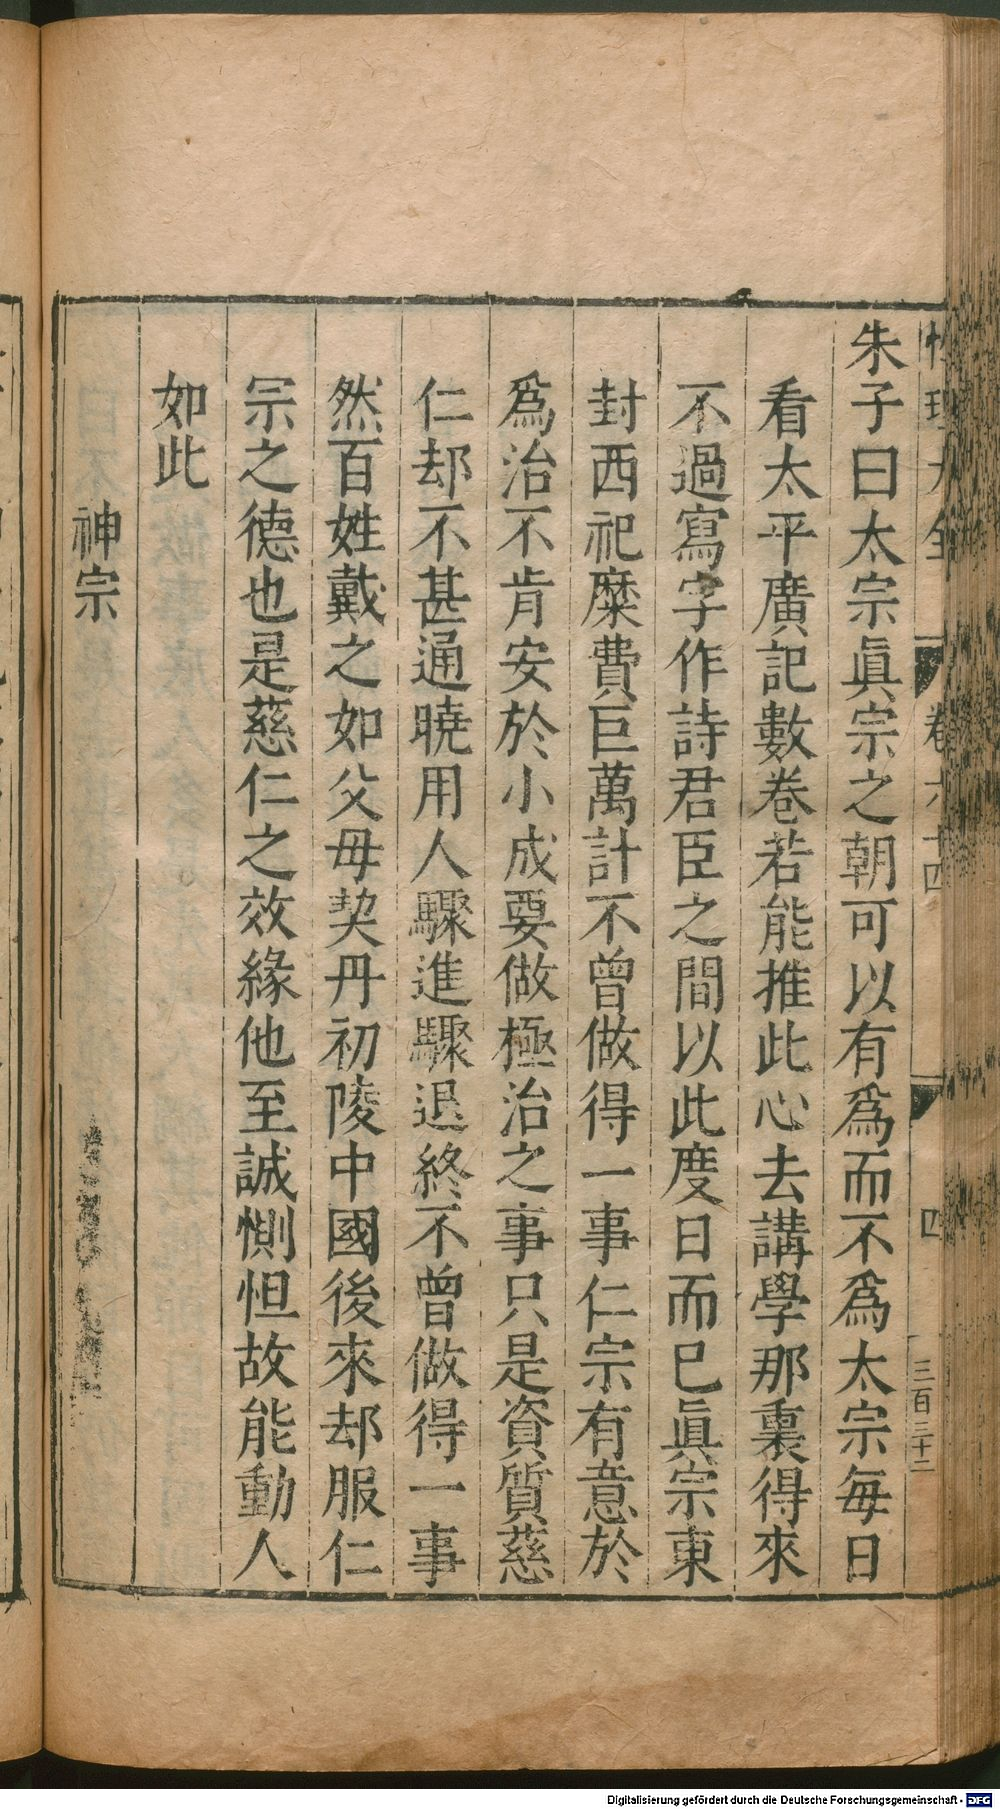 朱子曰太宗眞宗之朝可以有爲而不爲太宗每日
看太平廣記數卷若能推此心去講學那裏得來
不過寫字作詩君臣之間以此度日而已眞宗東
封西祀糜費巨萬計不曾做得一事仁宗有意於
爲治不肯安於小成要做極治之事只是資質慈
仁却不甚通曉用人驟進驟退終不曾做得一事
然百姓戴之如父母契丹初陵中國後來却服仁
宗之德也是慈仁之效緣他至誠惻怛故能動人
如此
神宗
性理大全
卷六十四
四
三百三十二
Digitalisierung gefördert durch die Deutsche Forschungsgemeinschaft - DFG